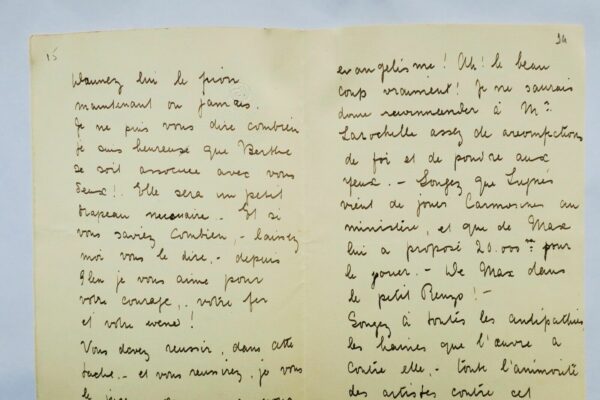 15
lui le pion
maintenant ou jamais.
Je ne puis vous dire combien
je suis heureuse que Berthe
se soit associée avec vous
deux! Elle sera un petit
drapeau . – Et si
vous saviez combien, – laissez
moi vous le dire, – depuis
je vous aime pour
votre courage, . votre fer
et votre !
Vous devez reussir, dans cette
tache. – et vous reussirez, je vous
le
24
evangelisme! Ah! le beau
coup vraiment! Je ne saurais
donc recommander à Mr.
Larochelle assez de
de foi et de poudre aux
yeux. – Songez que
vient de jouer au
ministère, et que de Max
lui a proposé 20.000 frs pour
le jouer. – De Max dans
le petit Renzo! –
Songez à toutes les antipathies
les haines que l'œuvre a
contre elle, – toute l'animosité
des artistes contre cet